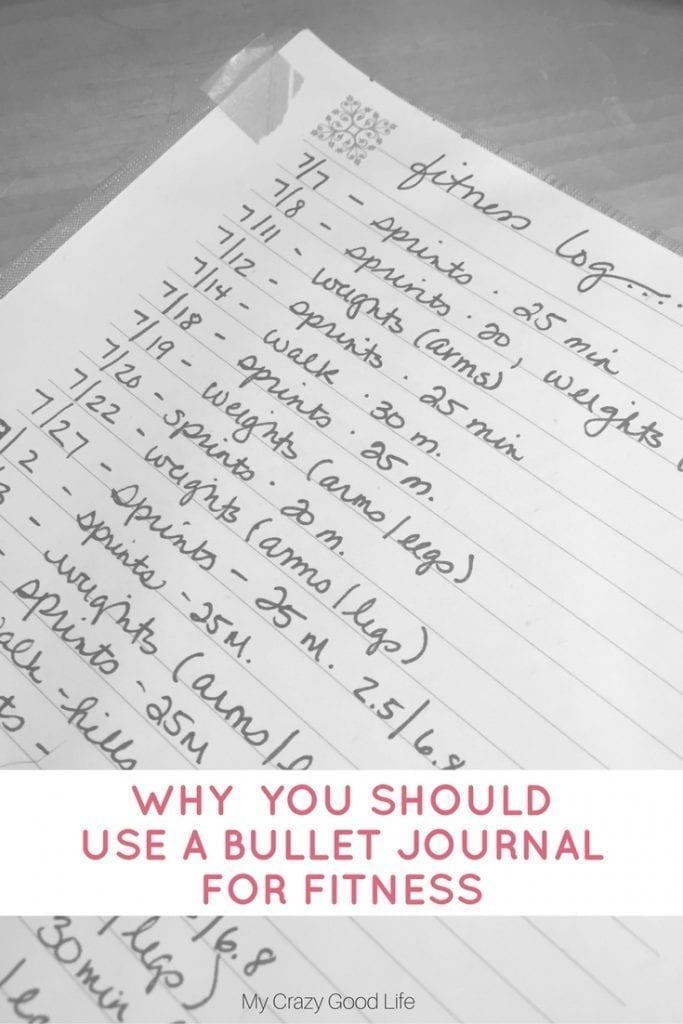 fitness log...
7/7 - sprints . 25 min
7/8 - sprints . 20, weights (
7/11 - weights (arms)
7/12 - sprints . 25 min
7/14 - walk . 30 m.
7/18 - sprints . 25 m.
7/19 - weights (arms/legs)
7/20 - sprints . 20 m.
7/22 - weights (arms/legs)
7/27 - sprints - 25 M. 2.5/6.8
/2 - sprints - 25M.
3 - weights (arms/l
- sprints - 25M
alk - hills
ts -
WHY YOU SHOULD
USE A BULLET JOURNAL
FOR FITNESS
/6.8
/legs)
30min
My Crazy Good Life